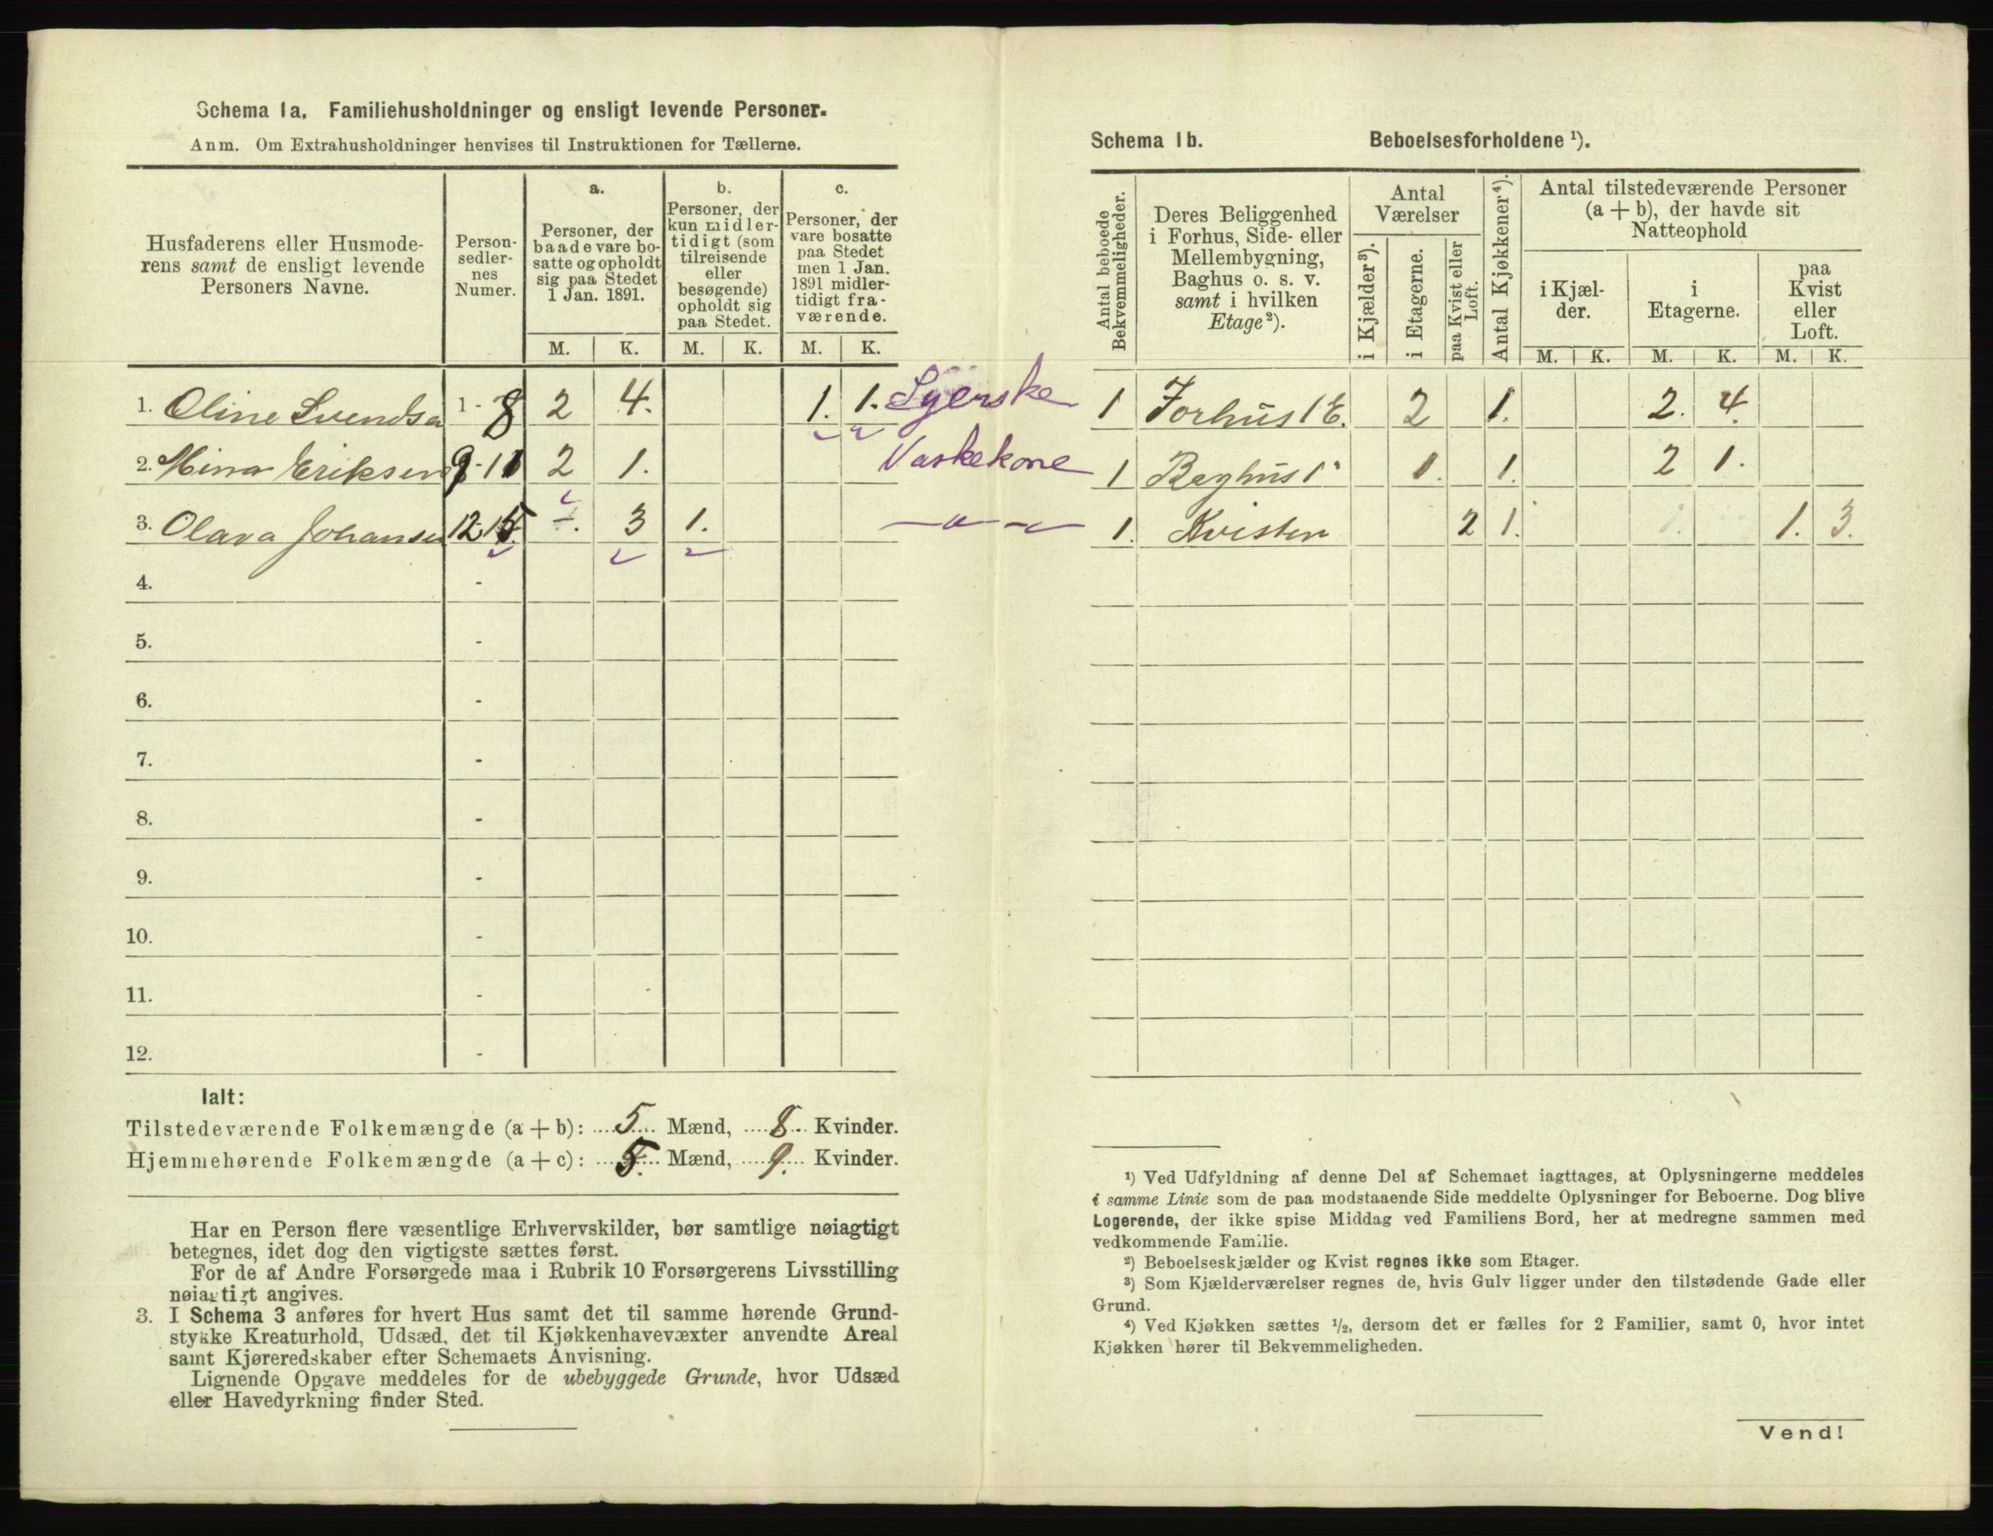 Schema 1a. Familiehusholdninger og ensligt levende Personer.
Anm. Om Extrahusholdninger henvises til Instruktionen for Tællerne.
Husfaderens eller Husmode-
rens samt de ensligt levende
Personers Navne.
Person-
sedler-
nes
Numer.
a.
Personer, der
baade vare bo-
satte og opholdt
sig paa Stedet
1 Jan. 1891.
b.
Personer, der
kun midler-
tidigt (som
tilreisende
eller
besøgende)
opholdt sig
paa Stedet.
c.
Personer, der
vare bosatte
paa Stedet
men 1 Jan.
1891 midler-
tidigt fra-
værende.
M. K. M. K. M. K.
1. Oline Svendsen 1 - 8 2 4. 1. 1. Syerske
2. Mina Eriksen 9 - 11 2 1. Vaskekone
3. Olava Johansen 12 - 15 3 1. — " —
4. -
5. -
6. -
7. -
8. -
9. -
10. -
11. -
12. -
Ialt:
Tilstedeværende Folkemængde (a + b): 5 Mænd, 8 Kvinder.
Hjemmehørende Folkemængde (a + c): 5. Mænd, 9. Kvinder.
Har en Person flere væsentlige Erhvervskilder, bør samtlige nøiagtigt
betegnes, idet dog den vigtigste sættes først.
For de af Andre Forsørgede maa i Rubrik 10 Forsørgerens Livsstilling
nøiagtigt angives.
3. I Schema 3 anføres for hvert Hus samt det til samme hørende Grund-
stykke Kreaturhold, Udsæd, det til Kjøkkenhavevæxter anvendte Areal
samt Kjøreredskaber efter Schemaets Anvisning.
Lignende Opgave meddeles for de ubebyggede Grunde, hvor Udsæd
eller Havedyrkning finder Sted.
Schema 1b. Beboelsesforholdene ¹).
Antal beboede
Bekvemmeligheder.
Deres Beliggenhed
i Forhus, Side- eller
Mellembygning,
Baghus o. s. v.
samt i hvilken
Etage²).
Antal
Værelser
i Kjælder³).
i Etagerne.
paa Kvist eller
Loft.
Antal Kjøkkener⁴).
Antal tilstedeværende Personer
(a + b), der havde sit
Natteophold
i Kjæl-
der.
i
Etagerne.
paa
Kvist
eller
Loft.
M. K. M. K. M. K.
1 Forhus 1 E. 2 1. 2. 4.
1 Baghus 1" 1. 1. 2 1.
1. Kvisten 2 1. 1. 3.
¹) Ved Udfyldning af denne Del af Schemaet iagttages, at Oplysningerne meddeles
i samme Linie som de paa modstaaende Side meddelte Oplysninger for Beboerne. Dog blive
Logerende, der ikke spise Middag ved Familiens Bord, her at medregne sammen med
vedkommende Familie.
²) Beboelseskjælder og Kvist regnes ikke som Etager.
³) Som Kjælderværelser regnes de, hvis Gulv ligger under den tilstødende Gade eller
Grund.
⁴) Ved Kjøkken sættes ½, dersom det er fælles for 2 Familier, samt 0, hvor intet
Kjøkken hører til Bekvemmeligheden.
Vend!